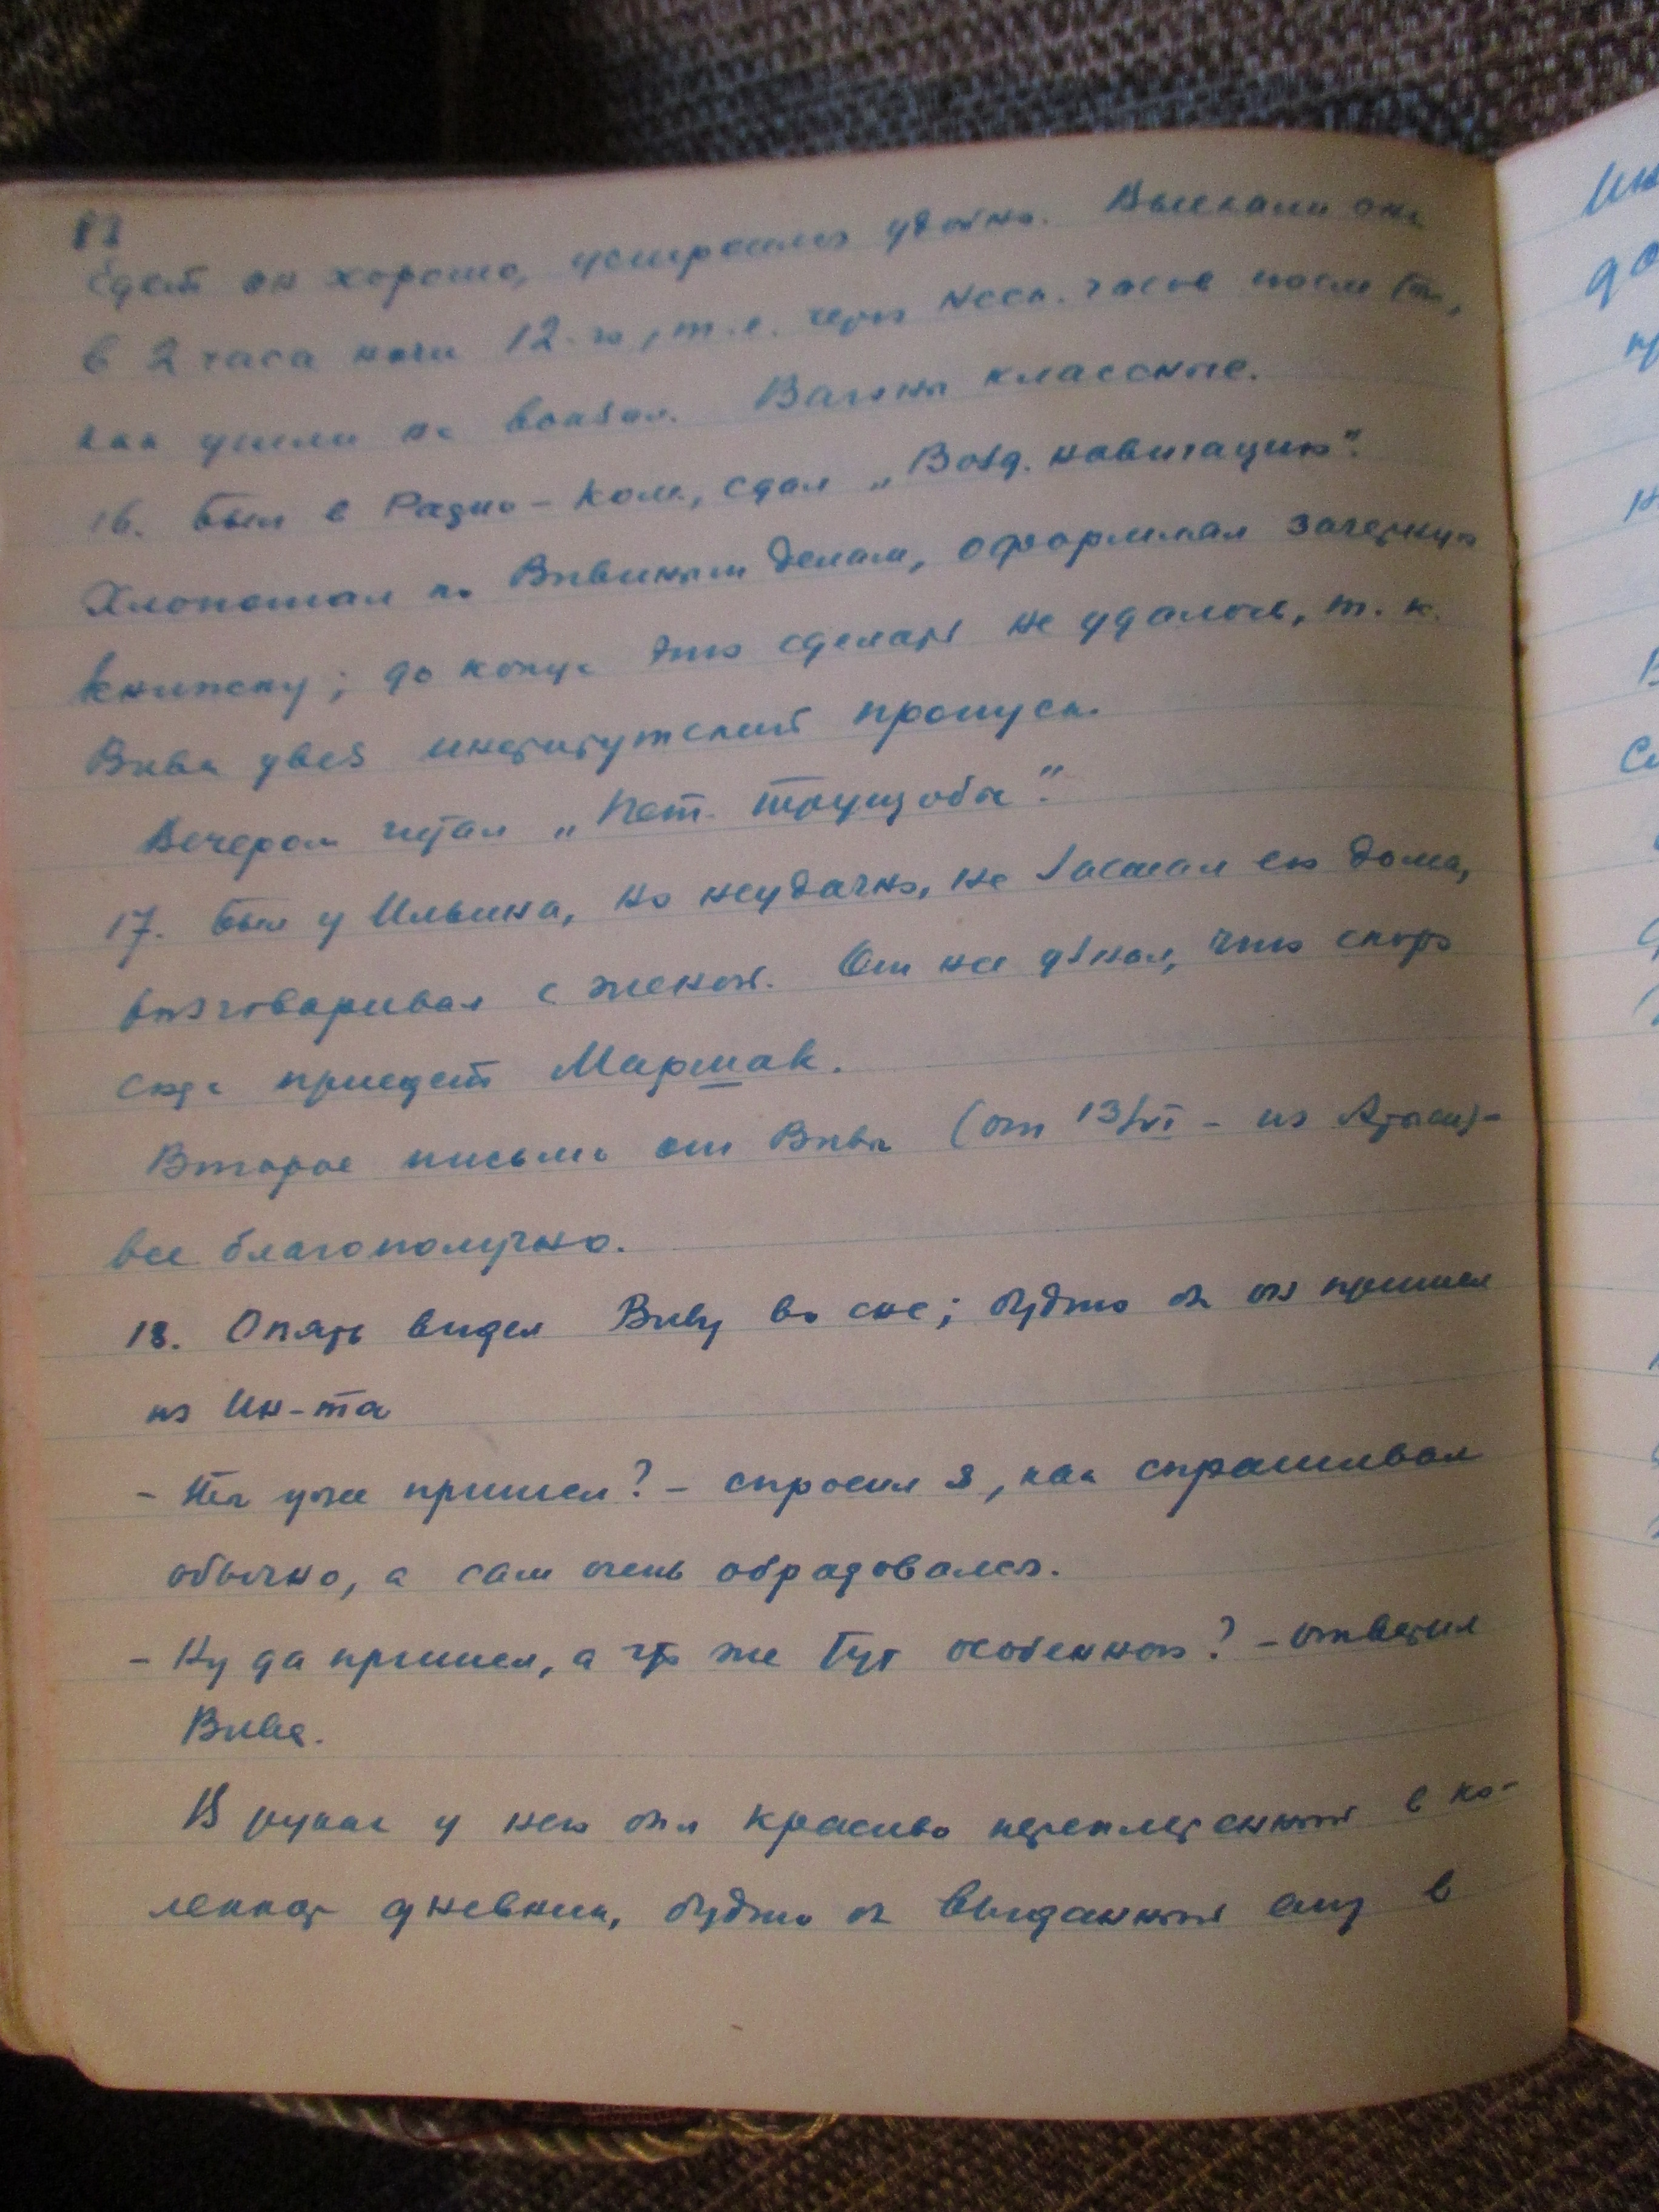 82
Едет он хорошо, устроился удобно. Выехали они
в 2 часа ночи 12-го, т.е. через неск. часов после того,
как ушли на вокзал. Вагоны классные.
16. Был в Радио-Ком., сдал „Возд. навигацию".
Хлопотал по Вивиным делам, оформлял зачетную
книжку; до конца это сделать не удалось, т. к.
Вива увез институтский пропуск.
Вечером читал „Пет. трущобы".
17. Был у Ильина, но неудачно, не застал его дома,
разговаривал с женой. От нее узнал, что скоро
сюда приедет Маршак.
Второе письмо от Вивы (от 13/VI – из Атрыси) –
все благополучно.
18. Опять видел Виву во сне; будто бы он пришел
из Ин-та
– Ты уже пришел? – спросил я, как спрашивал
обычно, а сам очень обрадовался.
– Ну да пришел, а что же тут особенного? – ответил
Вива.
В руках у него был красиво переплетенный в ко-
ленкор дневник, будто бы выданный ему в